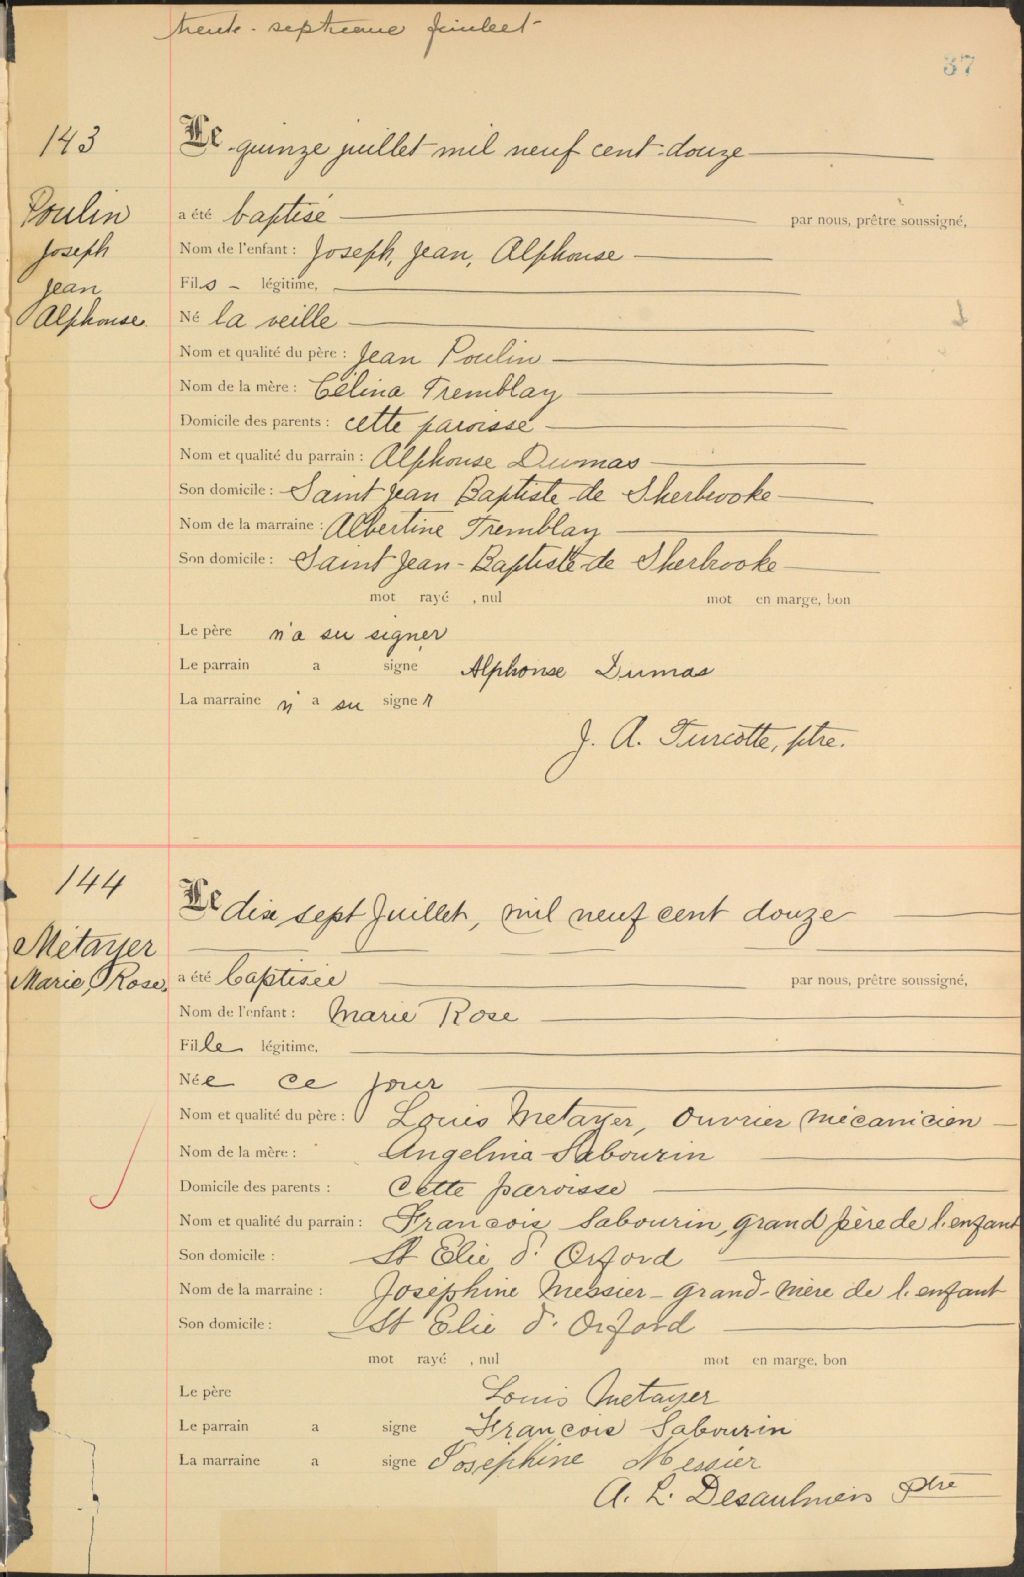 trente-septième feuillet
37
143
Le quinze juillet mil neuf cent douze
Poulin
Joseph
Jean
Alphonse
a été baptisé par nous, prêtre soussigné,
Nom de l'enfant : Joseph, Jean, Alphonse
Fils légitime,
Né la veille
Nom et qualité du père : Jean Poulin
Nom de la mère : Célina Tremblay
Domicile des parents : cette paroisse
Nom et qualité du parrain : Alphonse Dumas
Son domicile : Saint Jean Baptiste de Sherbrooke
Nom de la marraine : Albertine Tremblay
Son domicile : Saint Jean-Baptiste de Sherbrooke
mot rayé , nul mot en marge, bon
Le père n'a su signer
Le parrain a signe Alphonse Dumas
La marraine n' a su signer
J. A. Turcotte, ptre.
144
Le dix sept Juillet, mil neuf cent douze
Métayer
Marie, Rose,
a été baptisée par nous, prêtre soussigné,
Nom de l'enfant : Marie Rose
Fille légitime,
Née ce jour
Nom et qualité du père : Louis Metayer, ouvrier mécanicien
Nom de la mère : Angelina Sabourin
Domicile des parents : Cette paroisse
Nom et qualité du parrain : Francois Sabourin, grand père de l'enfant
Son domicile : St Elie d'Orford
Nom de la marraine : Joséphine Messier - grand-mère de l'enfant
Son domicile : St Elie d'Orford
mot rayé , nul mot en marge, bon
Le père Louis Metayer
Le parrain a signe François Sabourin
La marraine a signe Joséphine Messier
A. L. Desaulniers ptre